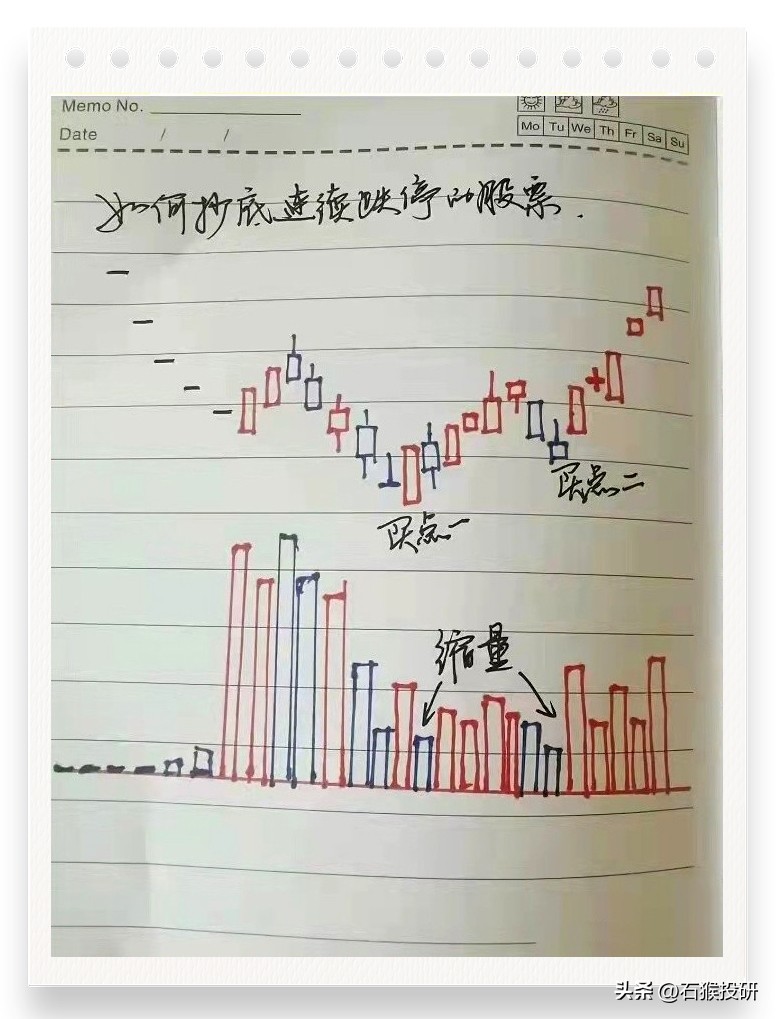 Memo No.
Date / /
Mo Tu We Th Fr Sa Su
如何抄底连续跌停的股票.
买点二
买点一
缩量
头条 @石猴投研